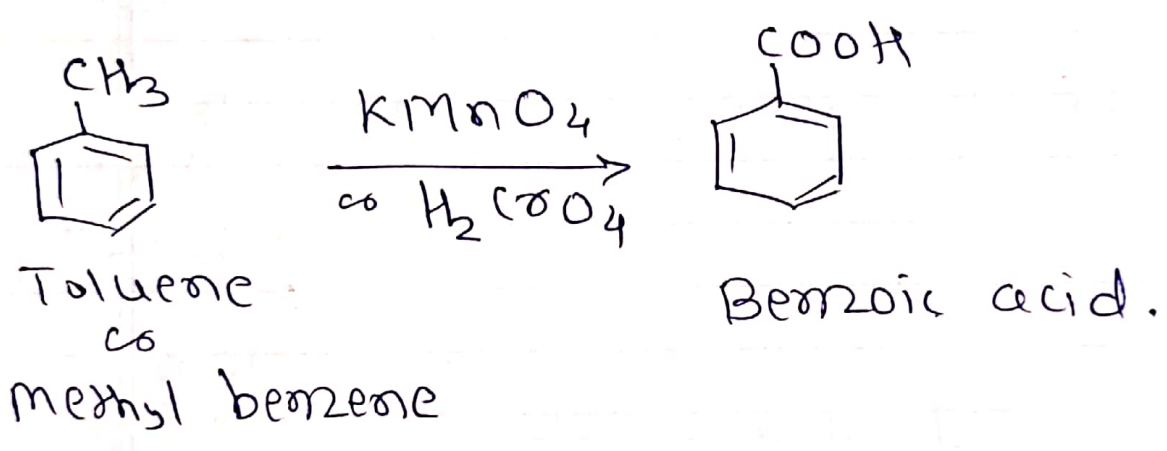 CH3
KMnO4
or H2CrO4
COOH
Toluene
or
methyl benzene
Benzoic acid.